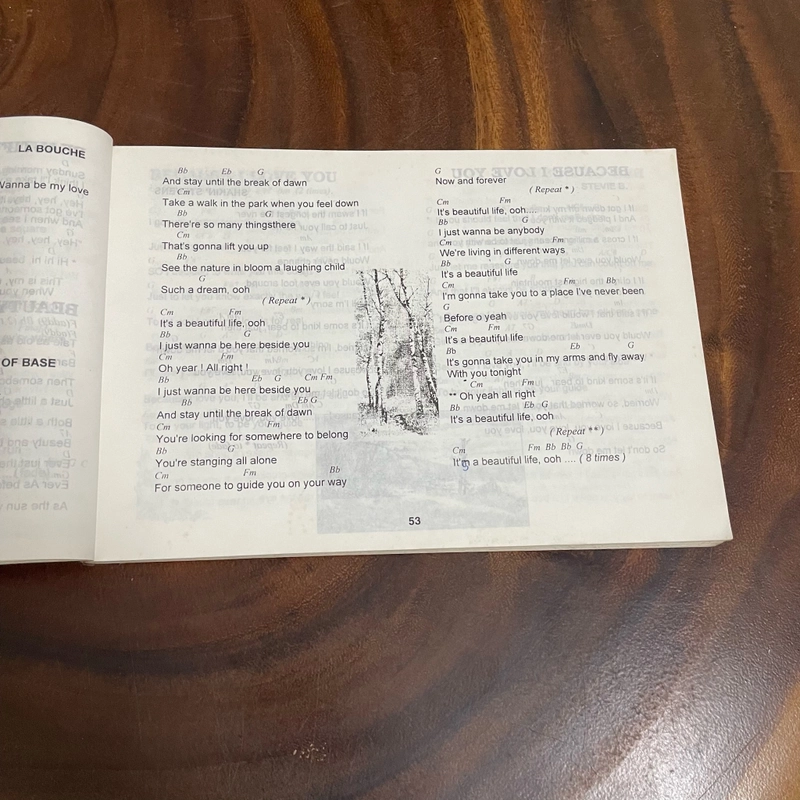 LA BOUCHE
Wanna be my love
OF BASE
Bb Eb G
And stay until the break of dawn
Cm
Take a walk in the park when you feel down
Bb G
There're so many thingsthere
Cm
That's gonna lift you up
Bb
See the nature in bloom a laughing child
G
Such a dream, ooh
( Repeat * )
Cm Fm
It's a beautiful life, ooh
Bb G
I just wanna be here beside you
Cm Fm
Oh year ! All right !
Bb Eb G Cm Fm
I just wanna be here beside you
Bb Eb G
And stay until the break of dawn
Cm Fm
You're looking for somewhere to belong
Bb G
You're stanging all alone
Cm Fm Bb
For someone to guide you on your way
G
Now and forever
( Repeat * )
Cm Fm
It's beautiful life, ooh....
Bb G
I just wanna be anybody
Cm Fm
We're living in different ways
Bb G
It's a beautiful life
Cm Fm Bb
I'm gonna take you to a place I've never been
G
Before o yeah
Cm Fm
It's a beautiful life
Bb Eb G
It's gonna take you in my arms and fly away
With you tonight
Cm Fm
** Oh yeah all right
Bb Eb G
It's a beautiful life, ooh
( Repeat ** )
Cm Fm Bb Bb G
a beautiful life, ooh .... ( 8 times )
53